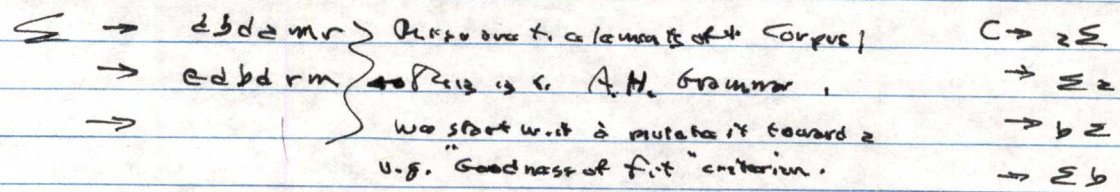 Σ → abdamr } These are the elements of the Corpus! C → aΣ
→ edbdrm ← This is the A.H. Grammar. → Σa
→ we start with & mutate it toward a → bΣ
u.g. "Goodness of fit" criterion. → Σb